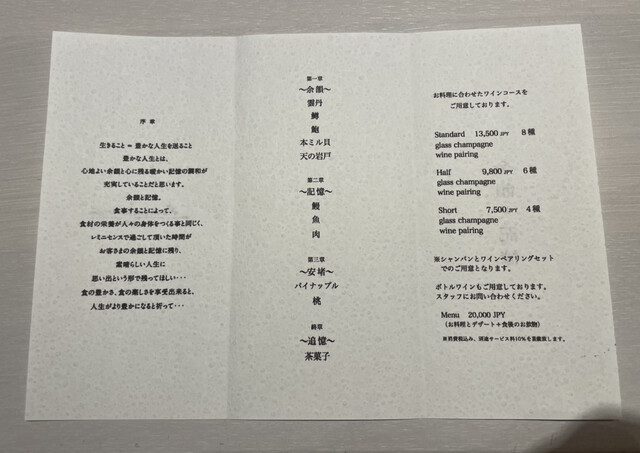 序章
生きること = 豊かな人生を送ること
豊かな人生とは、
心地よい余韻と心に残る暖かい記憶の調和が
充実していることだと思います。
余韻と記憶。
食事することによって、
食材の栄養が人々の身体をつくる事と同じく、
レミニセンスで過ごして頂いた時間が
お客さまの余韻と記憶に残り、
素晴らしい人生に
思い出という形で残ってほしい・・・
食の豊かさ、食の楽しさを享受出来ると、
人生がより豊かになると祈って・・・
第一章
～余韻～
雲丹
鱒
鮑
本ミル貝
天の岩戸
第二章
～記憶～
鰻
魚
肉
第三章
～安堵～
パイナップル
桃
終章
～追憶～
茶菓子
お料理に合わせたワインコースを
ご用意しております。
Standard 13,500 JPY 8種
glass champagne
wine pairing
Half 9,800 JPY 6種
glass champagne
wine pairing
Short 7,500 JPY 4種
glass champagne
wine pairing
※シャンパンとワインペアリングセット
でのご用意となります。
ボトルワインもご用意しております。
スタッフにお問い合わせください。
Menu 20,000 JPY
(お料理とデザート+食後のお飲物)
※消費税込み、別途サービス料10%を頂戴致します。